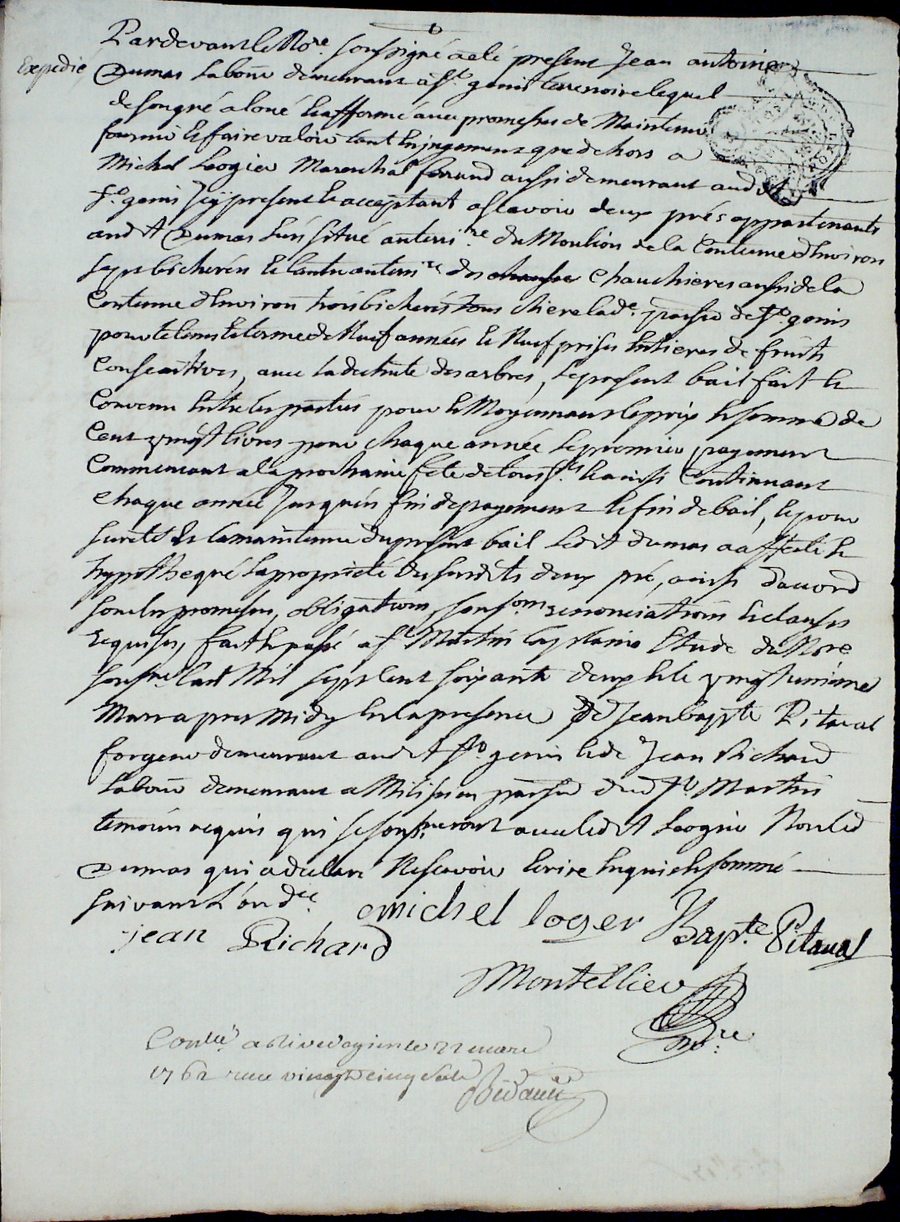 Expedie
Pardevant le No.re soussigné a été present Jean antoine
Dumas Labour. demeurant a St. genis terrenoire lequel
de son gré a loué et affermé avec promesse de Maintenir
fournir et faire valoir tant en jugement que dehors a
Michel Logier Marechal ferrand aussi demeurant aud.t
St. genis icy present et acceptant asavoir deux prés appartenants
aud.t Dumas l'un situé au terri.re du Moulion de la Contenue d'Environ
sept bicherées et l'autre au terri.re des Chauchieres aussi de la
Contenue d'Environ trois bicherées tous rierre lad.e parsse de St. genis
pour le tems et terme de Neuf années et Neuf prises Entieres de fruits
Consecutives, avec la détente des arbres, le present bail fait et
Convenu Entre les parties pour et Moyennant le prix et somme de
Cent vingt livres pour chaque année le premier payement
Commencant a la prochaine fete de touss.ts et ainsi Continuant
chaque année jusques en fin de payement et fin de bail, et pour
sureté et la maintenue du present bail led.t dumas a affecté et
hypothequé la proprieté des susdits deux pré, ainsi d'accord
sous les promesses, obligations, soum.ons renonciations et clauses
requises, fait et passé a St. Martin Caqstanio Etude du No.re
souss.né L'an Mil sept Cent soixante deux et le vingt unieme
Mars apres Midy En la presence de Jean bapte Pitaval
forgeur demeurant aud.t St. genis et de Jean Richard
Labour. demeurant a Milisieu parsse dud. St. Martin
temoins requis qui se sont avec led.t Logier Non led
Dumas qui a declaré Ne scavoir Ecrire Enquis et sommé
suivant L'ord.ce
michel loger Bapte Pitaval
jean Richard
Montellier
No.re
Con.lé a rivedegier le 22 mars
1762 recu vingt cinq sols